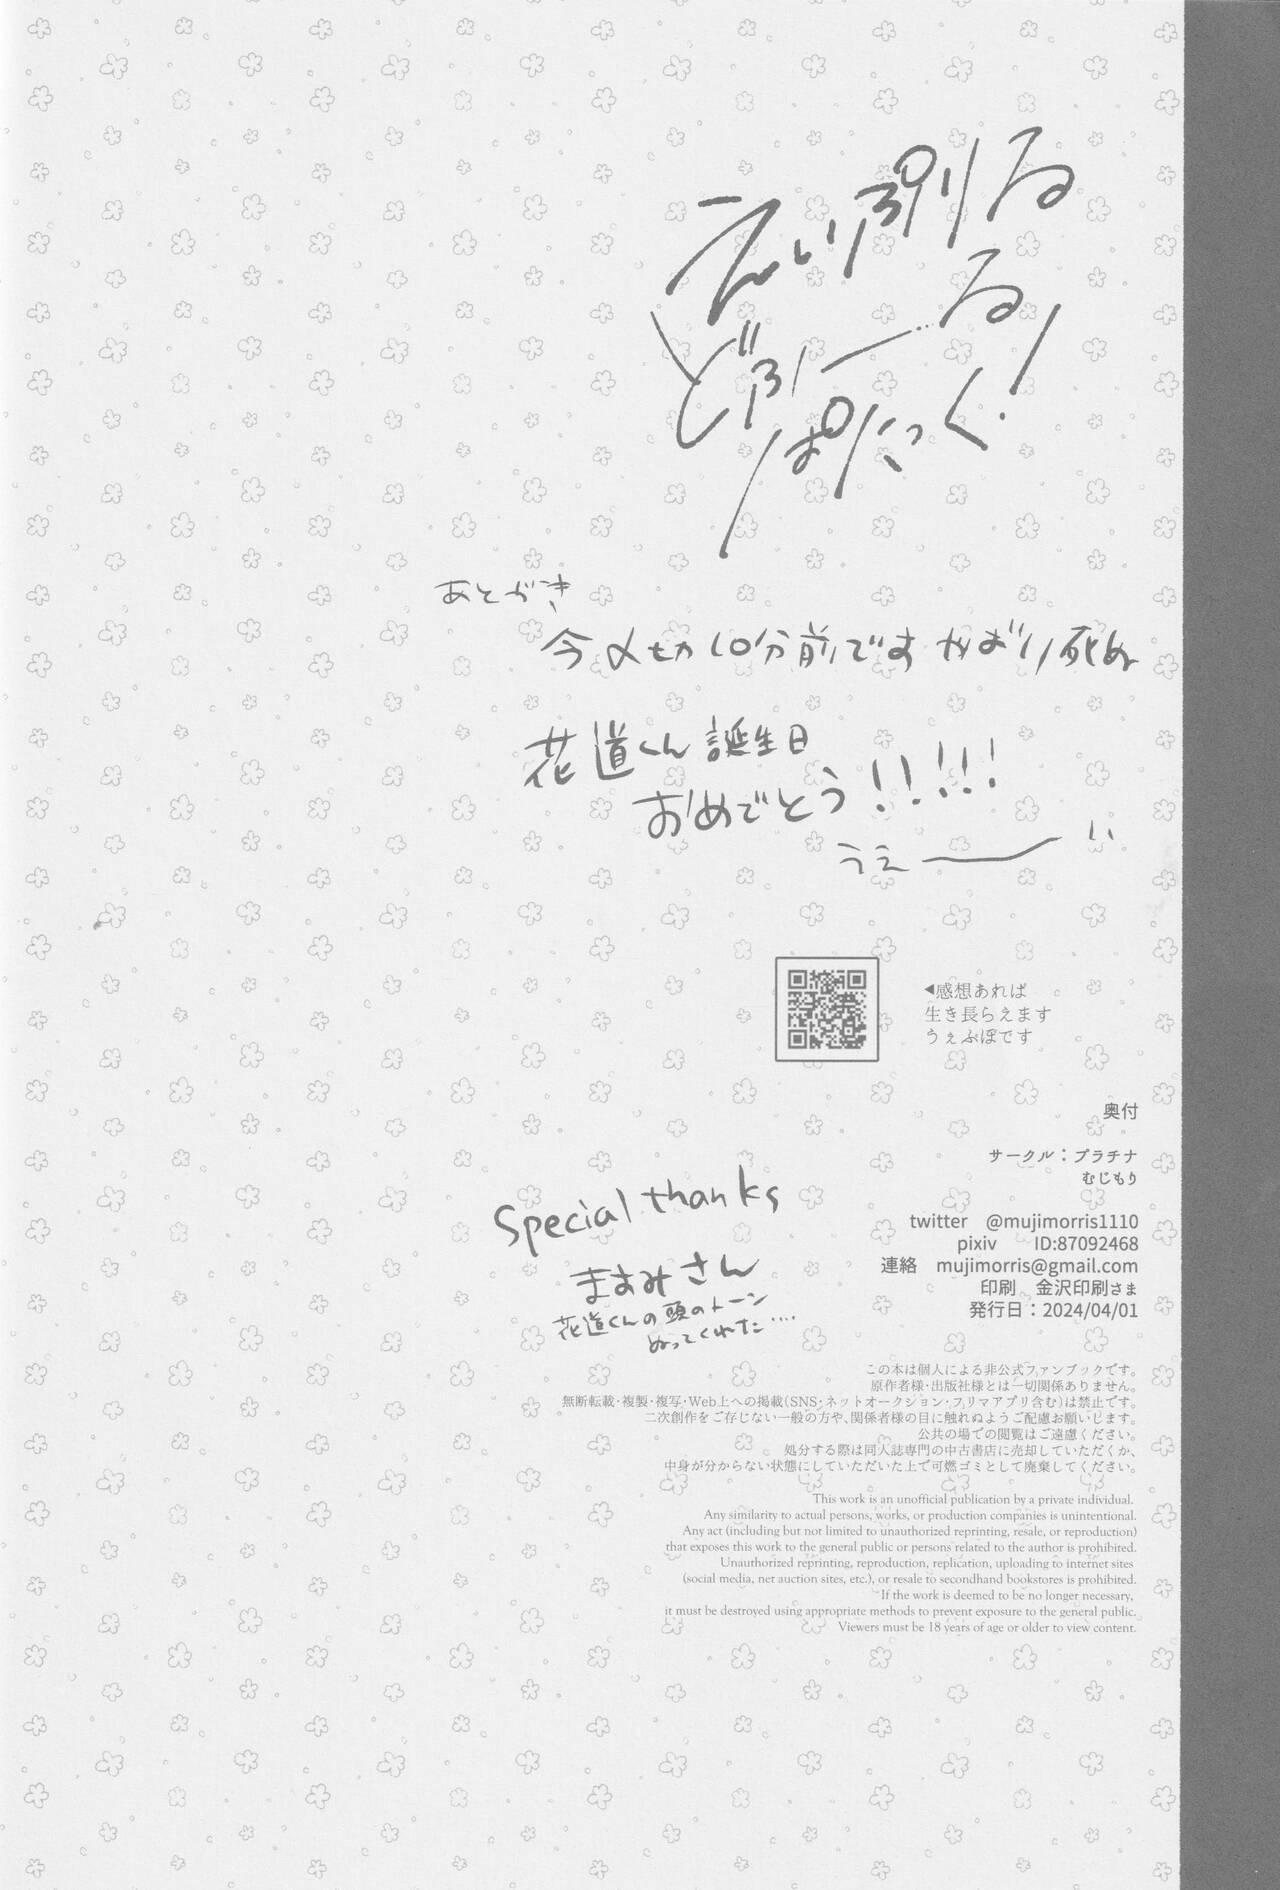 えいぷりる
どふーる
ぱにっく!
あとがき
今〆切10分前です やばい 死ぬ
花道くん誕生日
おめでとう!!!!!
うえー
◀感想あれば
生き長らえます
うぇぶぼです
奥付
サークル：プラチナ
むじもり
twitter @mujimorris1110
pixiv ID:87092468
連絡 mujimorris@gmail.com
印刷 金沢印刷さま
発行日：2024/04/01
Special thanks
まおみさん
花道くんの頭のトーン
ぬってくれた….
この本は個人による非公式ファンブックです。
原作者様・出版社様とは一切関係ありません。
無断転載・複製・複写・Web上への掲載(SNS・ネットオークション・フリマアプリ含む)は禁止です。
二次創作をご存じない一般の方や、関係者様の目に触れぬようご配慮お願いします。
公共の場での閲覧はご遠慮ください。
処分する際は同人誌専門の中古書店に売却していただくか、
中身が分からない状態にしていただいた上で可燃ゴミとして廃棄してください。
This work is an unofficial publication by a private individual.
Any similarity to actual persons, works, or production companies is unintentional.
Any act (including but not limited to unauthorized reprinting, resale, or reproduction)
that exposes this work to the general public or persons related to the author is prohibited.
Unauthorized reprinting, reproduction, replication, uploading to internet sites
(social media, net auction sites, etc.), or resale to secondhand bookstores is prohibited.
If the work is deemed to be no longer necessary,
it must be destroyed using appropriate methods to prevent exposure to the general public.
Viewers must be 18 years of age or older to view content.